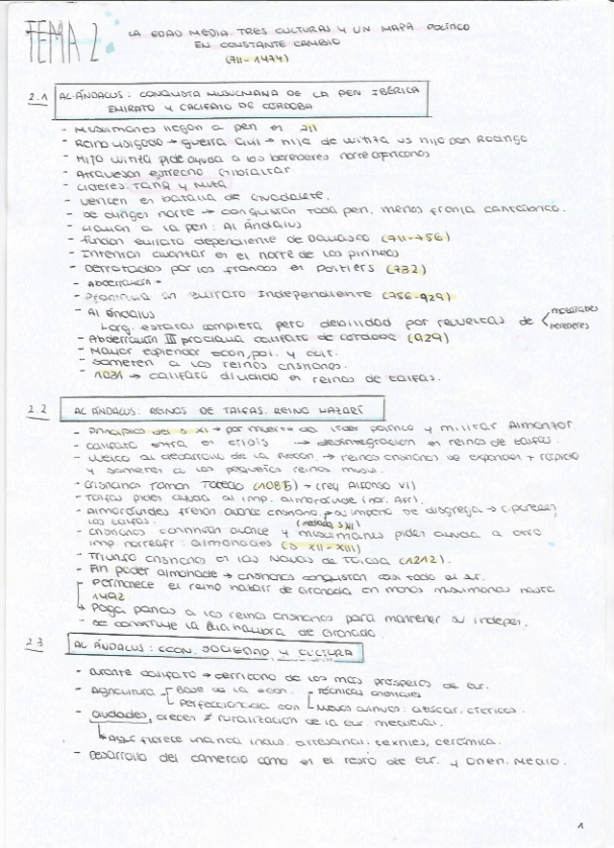 TEMA 2
LA EDAD MEDIA. TRES CULTURAS Y UN MAPA POLÍTICO
EN CONSTANTE CAMBIO
(711-1474)
2.1 AL-ÁNDALUS: CONQUISTA MUSULMANA DE LA PEN IBÉRICA
EMIRATO Y CALIFATO DE CÓRDOBA
- Musulmanes llegan a pen en 711
- Reino visigodo → guerra civil → hijo de Witiza vs hijo Don Rodrigo
- Hijo Witiza pide ayuda a los bereberes norteafricanos
- Atraviesan estrecho Gibraltar
- Líderes: Tariq y Muza
- Vencen en batalla de Guadalete.
- Se dirigen norte → conquistan toda pen. menos franja cantábrica.
- Llaman a la pen: Al Ándalus
- Fundan emirato dependiente de Damasco (711-756)
- Intentan avanzar en el norte de los pirineos
- Derrotados por los francos en Poitiers (732)
- Abderramán I
- Proclama un emirato Independiente (756-929)
- Al Ándalus
L org. estatal completa pero debilidad por revueltas de < mozárabes
bereberes
- Abderramán III proclama califato de Córdoba (929)
- Mayor esplendor econ, pol. y cult.
- Someten a los reinos cristianos.
- 1031 → califato dividido en reinos de taifas.
2.2 AL ÁNDALUS: REINOS DE TAIFAS. REINO NAZARÍ
- Principios del s XI → por muerte del líder político y militar Almanzor
- Califato entra en crisis → desintegración en reinos de taifas.
- Inicio al desarrollo de la Recon. → reinos cristianos se expanden + rápido
y someten a los pequeños reinos musul.
- Cristianos toman Toledo (1085) → (rey Alfonso VI)
- Taifas piden ayuda al imp. almorávide (nor. Afr).
- Almorávides frenan avance cristiano, su imperio se disgrega →
los taifas.
(mediados s XII)
- Cristianos continúan avance y musulmanes piden ayuda a otro
imp norteafr: almohades (s XII-XIII)
- Triunfo cristianos en las Navas de Tolosa (1212).
- Fin poder almohade → cristianos conquistan casi todo el sur.
- Permanece el reino nazarí de Granada en manos musulmanas hasta
1492
→ Paga parias a los reinos cristianos para mantener su indepe.
- Se construye la Alhambra de Granada.
2.3 AL ÁNDALUS: ECON. SOCIEDAD Y CULTURA
- Durante califato → territorio de los más prósperos de eur.
- Agricultura Base de la econ. técnicas orientales
Perfeccionada con Nuevos cultivos: azúcar, cítricos.
- Ciudades, crecen ≠ ruralización de la eur. medieval.
→ Aquí florece una rica indus. artesanal: textiles, cerámica.
- Desarrollo del comercio como en el resto de eur. y Orien. Medio.
1